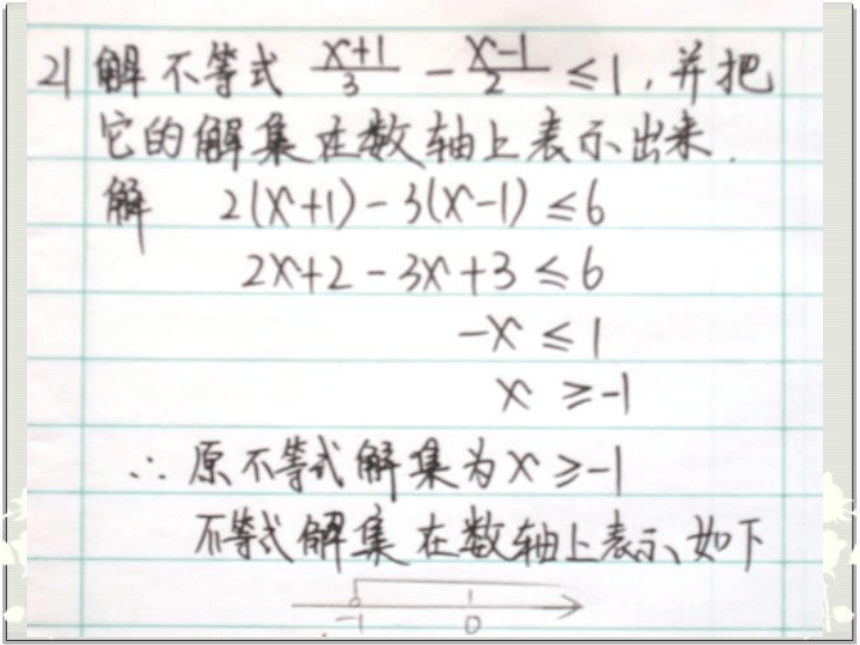 21 解不等式 (x+1)/3 - (x-1)/2 ≤1, 并把
它的解集在数轴上表示出来.
解 2(x+1)-3(x-1)≤6
2x+2-3x+3≤6
-x≤1
x≥-1
∴ 原不等式解集为x≥-1
不等式解集在数轴上表示如下
-1 0